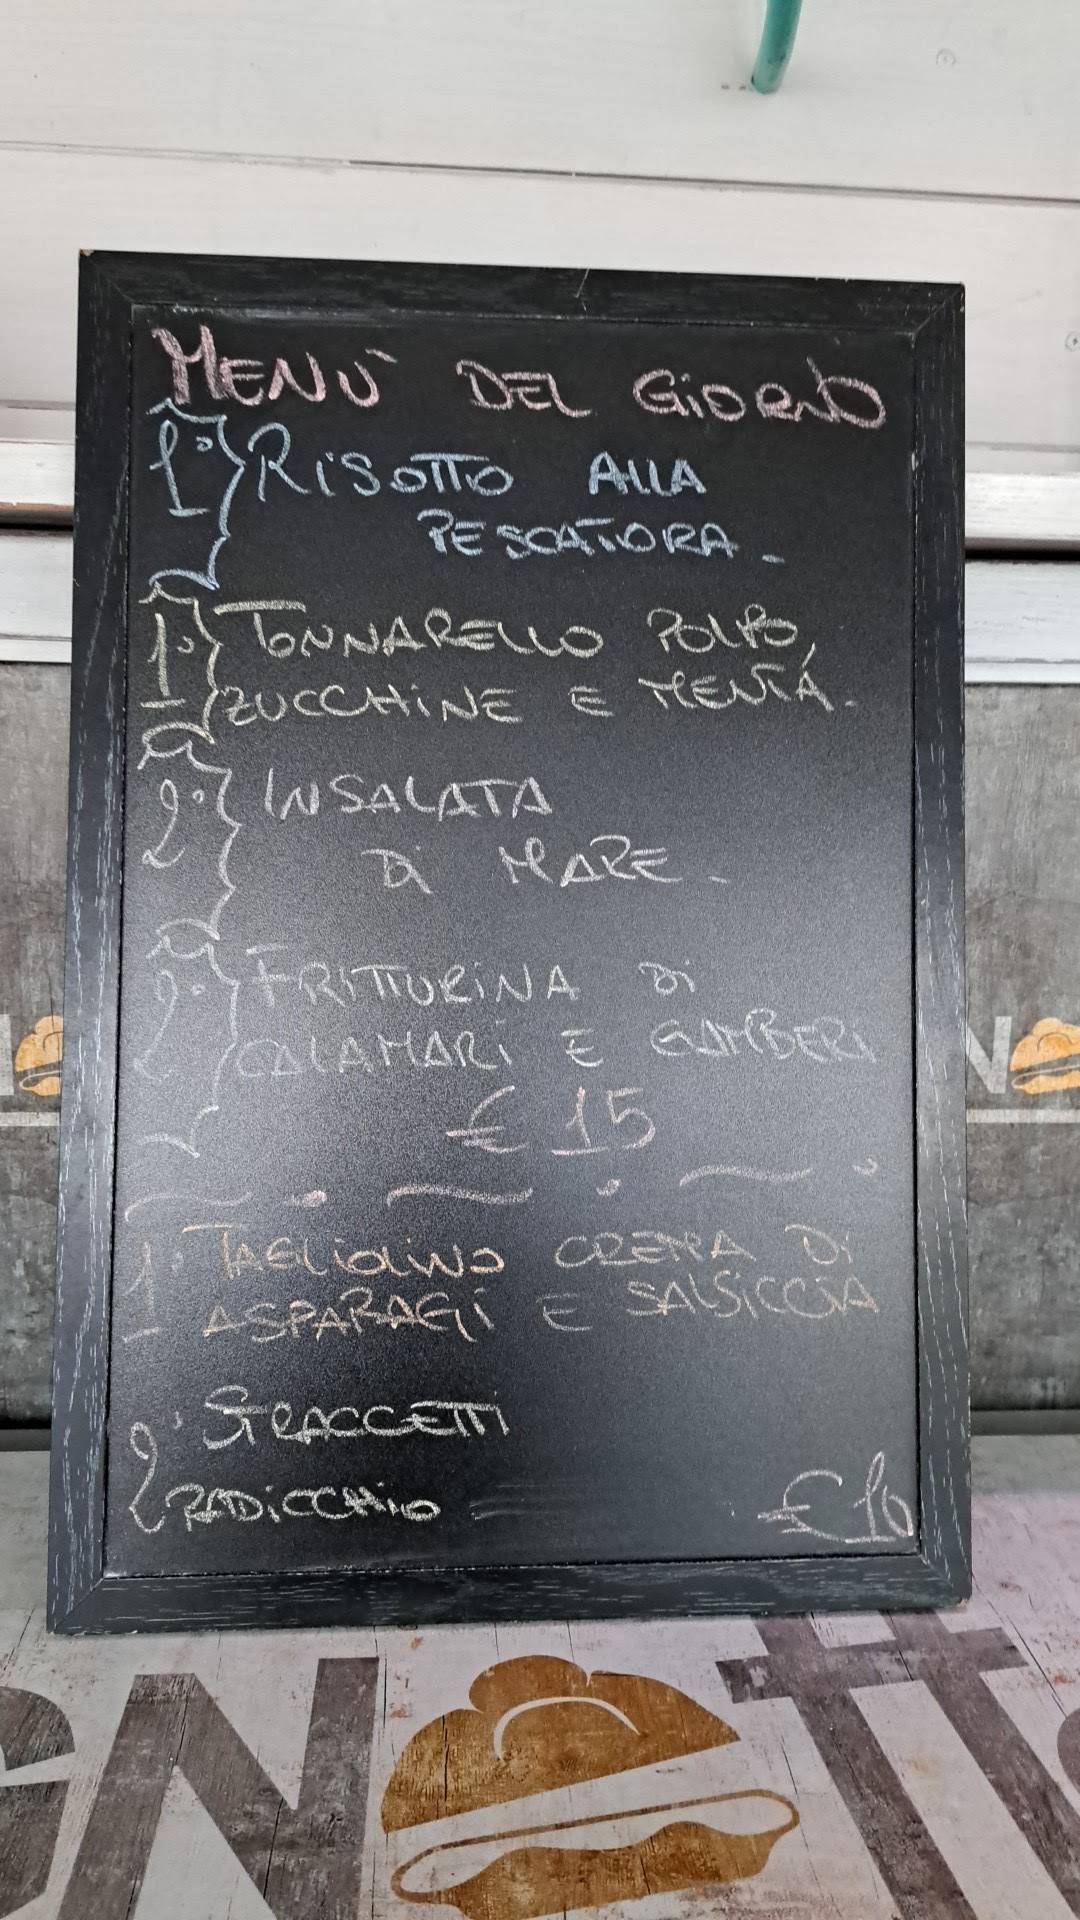 MENÙ DEL GIORNO
1° RISOTTO ALLA
PESCATORA.
1° TONNARELLO POLPO,
ZUCCHINE E MENTA.
2° INSALATA
DI MARE.
2° FRITTURINA DI
CALAMARI E GAMBERI
€ 15
1° TAGLIOLINO CREMA DI
ASPARAGI E SALSICCIA
2° STRACCETTI
RADICCHIO
€ 10